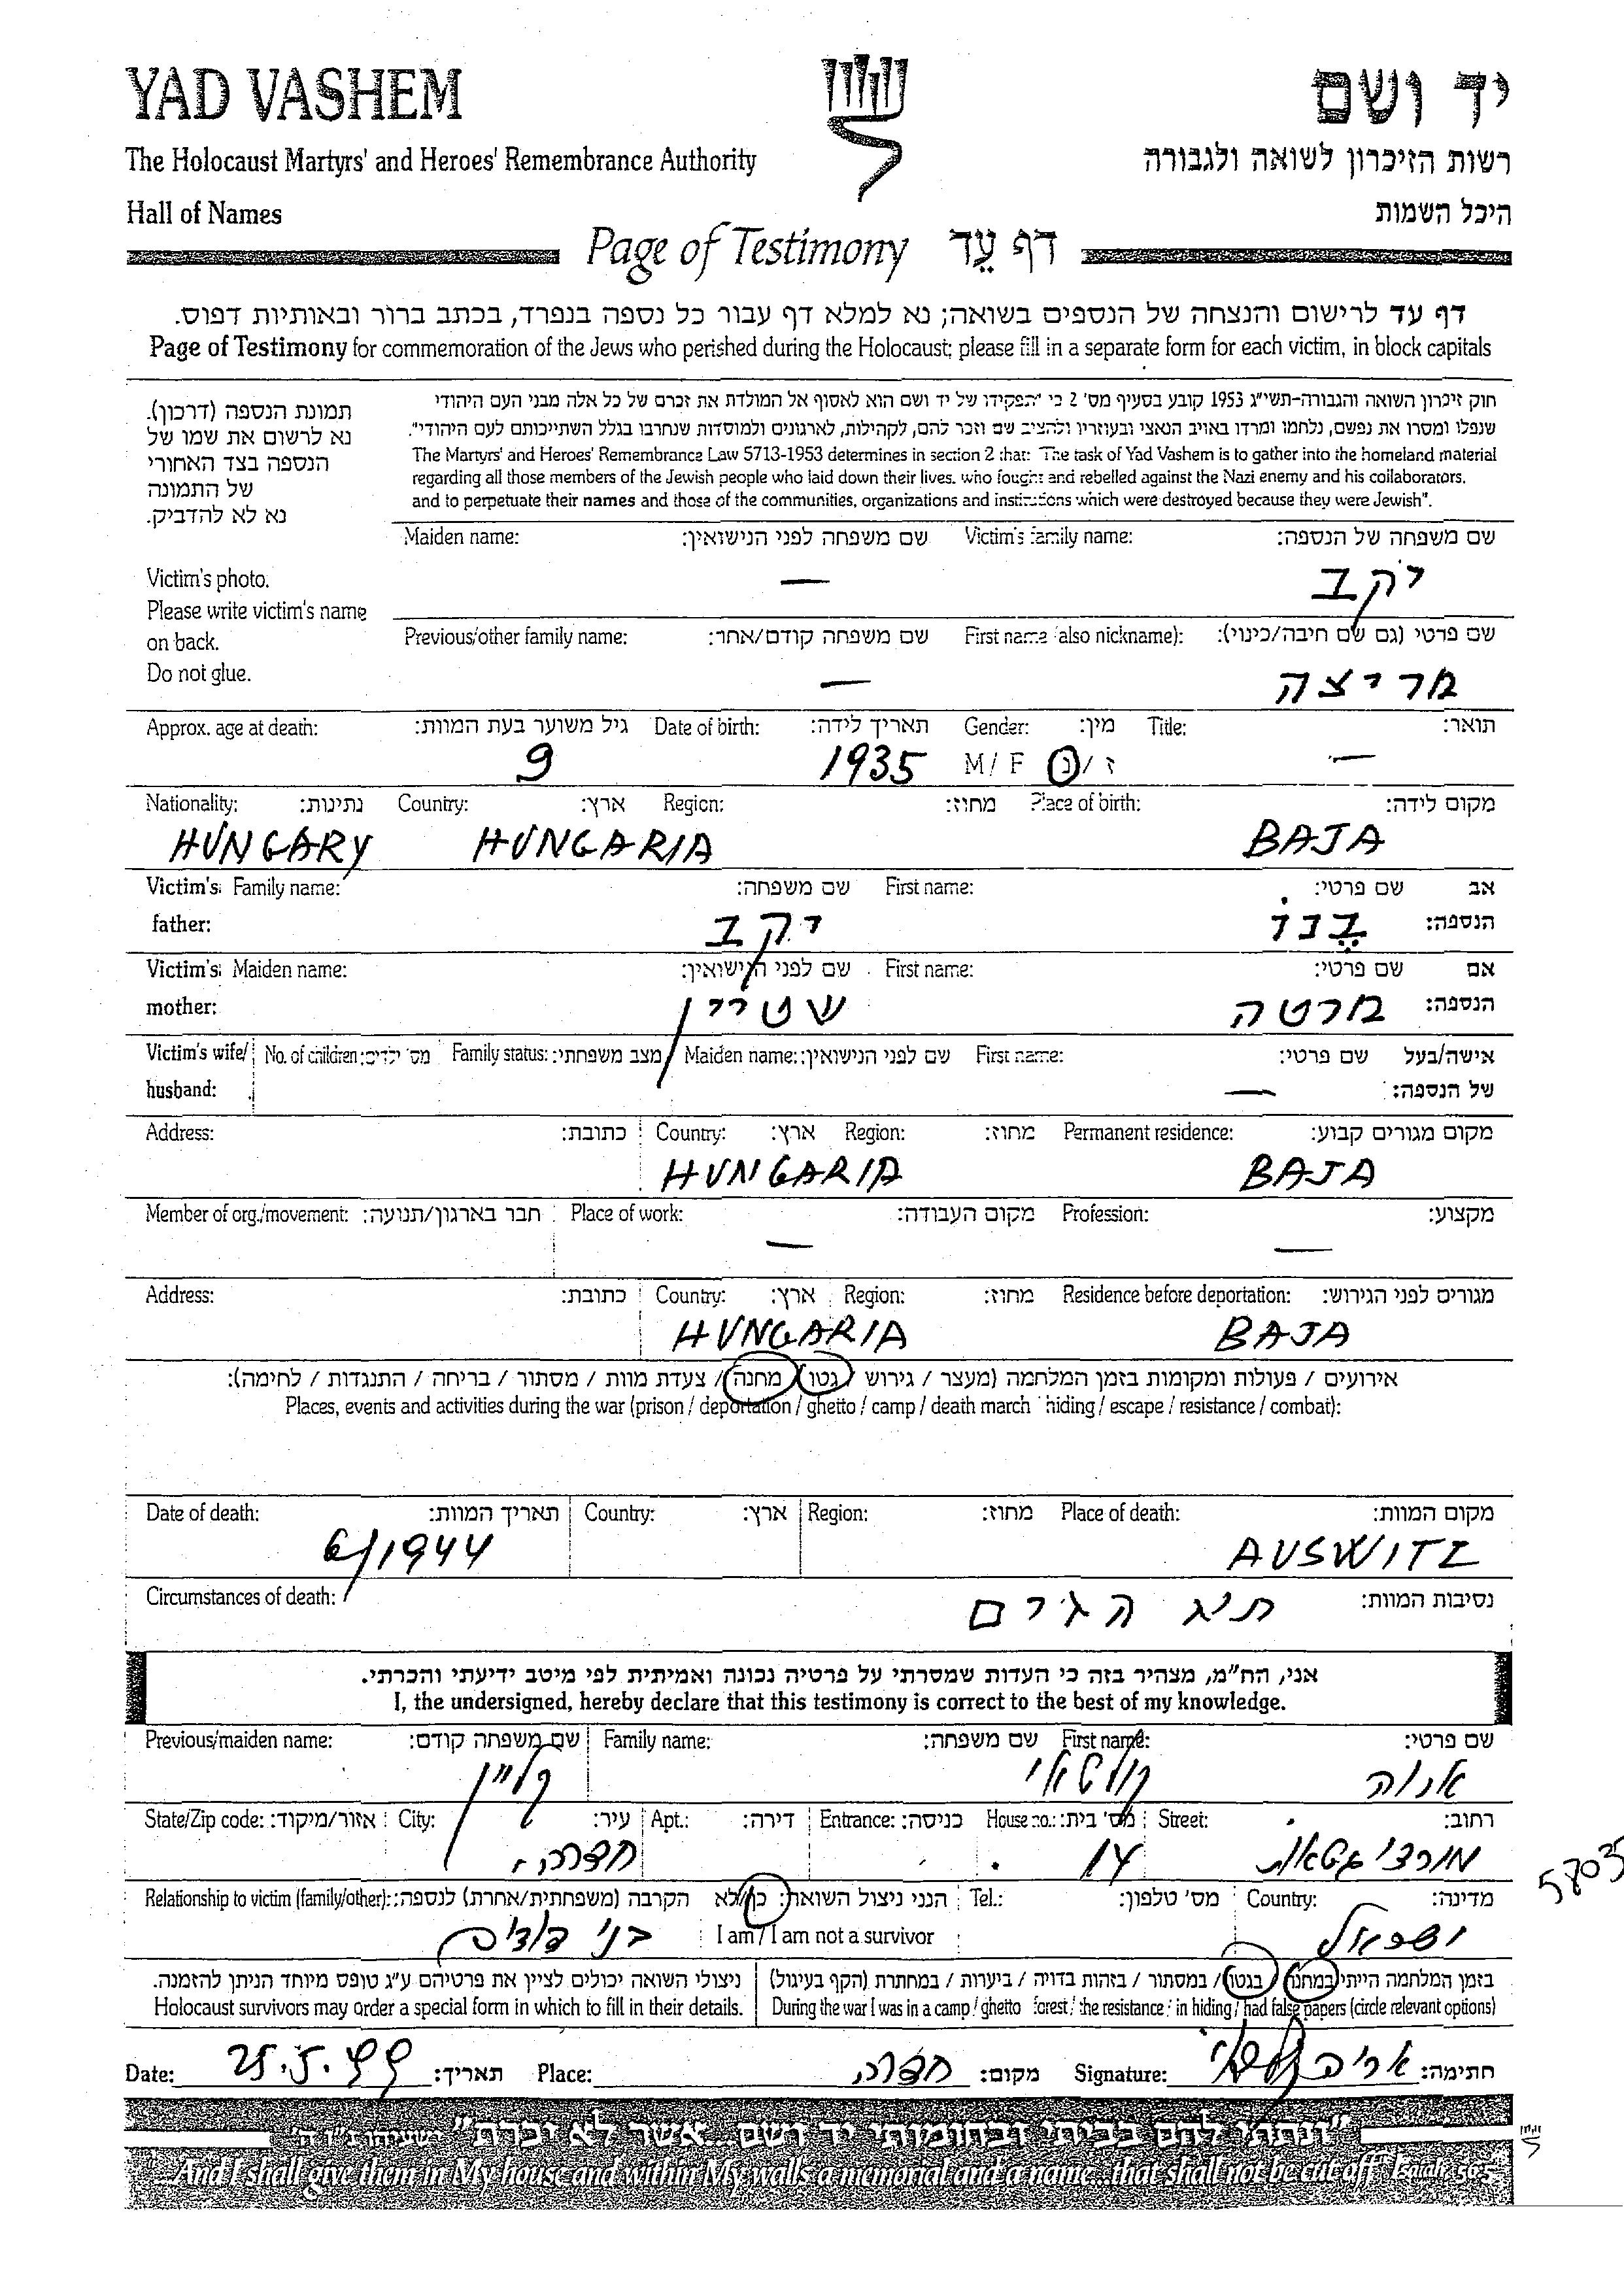 YAD VASHEM יד ושם
The Holocaust Martyrs' and Heroes' Remembrance Authority רשות הזיכרון לשואה ולגבורה
Hall of Names היכל השמות
Page of Testimony דף עֵד
דף עד לרישום והנצחה של הנספים בשואה; נא למלא דף עבור כל נספה בנפרד, בכתב ברור ובאותיות דפוס.
Page of Testimony for commemoration of the Jews who perished during the Holocaust; please fill in a separate form for each victim, in block capitals
תמונת הנספה (דרכון).
נא לרשום את שמו של
הנספה בצד האחורי
של התמונה
נא לא להדביק.
Victim's photo.
Please write victim's name
on back.
Do not glue.
חוק זיכרון השואה והגבורה-תשי"ג 1953 קובע בסעיף מס' 2 כי "תפקידו של יד ושם הוא לאסוף אל המולדת את זכרם של כל אלה מבני העם היהודי
שנפלו ומסרו את נפשם, נלחמו ומרדו באויב הנאצי ובעוזריו ולהציב שם וזכר להם, לקהילות, לארגונים ולמוסדות שנחרבו בגלל השתייכותם לעם היהודי".
The Martyrs' and Heroes' Remembrance Law 5713-1953 determines in section 2 that: "The task of Yad Vashem is to gather into the homeland material
regarding all those members of the Jewish people who laid down their lives, who fought and rebelled against the Nazi enemy and his collaborators,
and to perpetuate their names and those of the communities, organizations and institutions which were destroyed because they were Jewish".
Maiden name: שם משפחה לפני הנישואין: Victim's family name: שם משפחה של הנספה:
— יקב
Previous/other family name: שם משפחה קודם/אחר: First name (also nickname): שם פרטי (גם שם חיבה/כינוי):
— מריצה
Approx. age at death: גיל משוער בעת המוות: Date of birth: תאריך לידה: Gender: מין: Title: תואר:
9 1935 M / F ז / נ —
Nationality: נתינות: Country: ארץ: Region: מחוז: Place of birth: מקום לידה:
HUNGARY HUNGARIA BAJA
Victim's father: Family name: שם משפחה: First name: שם פרטי: אב הנספה:
יקב בנו
Victim's mother: Maiden name: שם לפני הנישואין: First name: שם פרטי: אם הנספה:
שטיין מרטה
Victim's wife/ husband: No. of children: מס' ילדים: Family status: מצב משפחתי: Maiden name: שם לפני הנישואין: First name: שם פרטי: אישה/בעל של הנספה:
—
Address: כתובת: Country: ארץ: Region: מחוז: Permanent residence: מקום מגורים קבוע:
HUNGARIA BAJA
Member of org./movement: חבר בארגון/תנועה: Place of work: מקום העבודה: Profession: מקצוע:
— —
Address: כתובת: Country: ארץ: Region: מחוז: Residence before deportation: מגורים לפני הגירוש:
HUNGARIA BAJA
אירועים / פעולות ומקומות בזמן המלחמה (מעצר / גירוש / גטו / מחנה / צעדת מוות / מסתור / בריחה / התנגדות / לחימה):
Places, events and activities during the war (prison / deportation / ghetto / camp / death march / hiding / escape / resistance / combat):
Date of death: תאריך המוות: Country: ארץ: Region: מחוז: Place of death: מקום המוות:
6/1944 AUSWITZ
Circumstances of death: נסיבות המוות:
תא הגזים
אני, הח"מ, מצהיר בזה כי העדות שמסרתי על פרטיה נכונה ואמיתית לפי מיטב ידיעתי והכרתי.
I, the undersigned, hereby declare that this testimony is correct to the best of my knowledge.
Previous/maiden name: שם משפחה קודם: Family name: שם משפחה: First name: שם פרטי:
קליין
State/Zip code: אזור/מיקוד: City: עיר: Apt.: דירה: Entrance: כניסה: House no.: מס' בית: Street: רחוב:
חדרה 14 מורדי גטאות
Relationship to victim (family/other): הקרבה (משפחתית/אחרת) לנספה: הנני ניצול השואה: כן/לא Tel.: מס' טלפון: Country: מדינה:
בני דודים I am / I am not a survivor ישראל
ניצולי השואה יכולים לציין את פרטיהם ע"ג טופס מיוחד הניתן להזמנה. בזמן המלחמה הייתי במחנה / בגטו / במסתור / בזהות בדויה / ביערות / במחתרת (הקף בעיגול)
Holocaust survivors may order a special form in which to fill in their details. During the war I was in a camp / ghetto / forest / the resistance / in hiding / had false papers (circle relevant options)
Date: 25.5.99 תאריך: Place: חדרה מקום: Signature: חתימה:
"ונתתי להם בביתי ובחומותי יד ושם...אשר לא יכרת" ישעיהו נ"ו ה'
"And I shall give them in My house and within My walls a memorial and a name...that shall not be cut off" Isaiah, 56:5